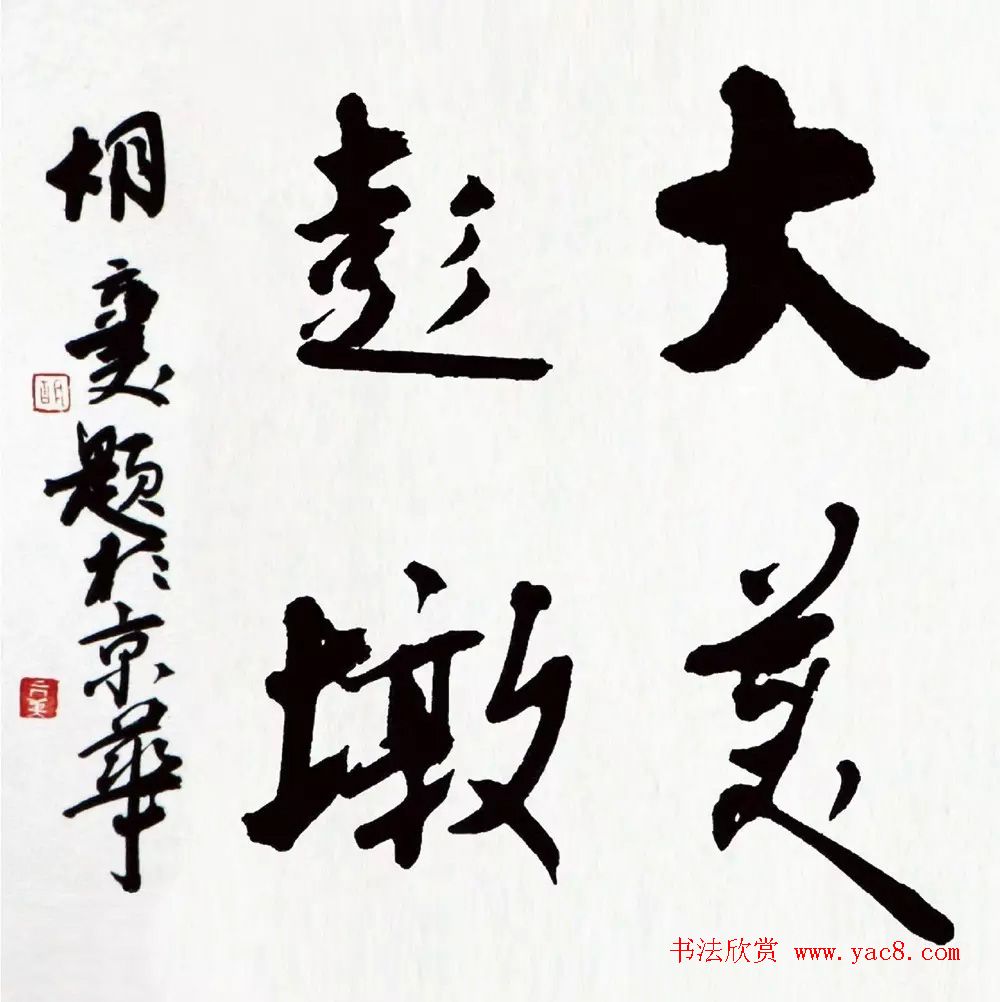 大美
彭墩
胡 题於京華
书法欣赏 www.yac8.com